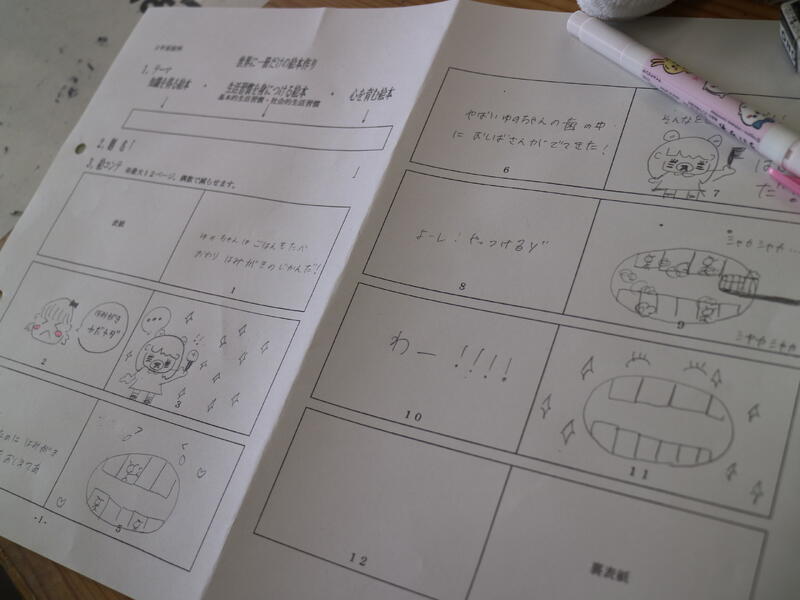 世界に一冊だけの絵本作り
1，テーマ
知識を得る絵本 ・ 生活習慣を身につける絵本 ・ 心を育む絵本
基本的生活習慣・社会的生活習慣
2，題名！
3，絵コンテ ※最大12ページ、偶数で減らせます。
表紙
ゆずちゃんはごはんをたべ
おわり はみがきのじかんだ！
1
はみがき
やだもん
2
3
5
-1-
やばいゆずちゃんの歯の中
におしばさんがでてきた！
6
そんなと
7
よーし！やっつけるゾ
8
シャカシャカ…
シャカシャカ
9
わー！！！！
10
11
12
裏表紙